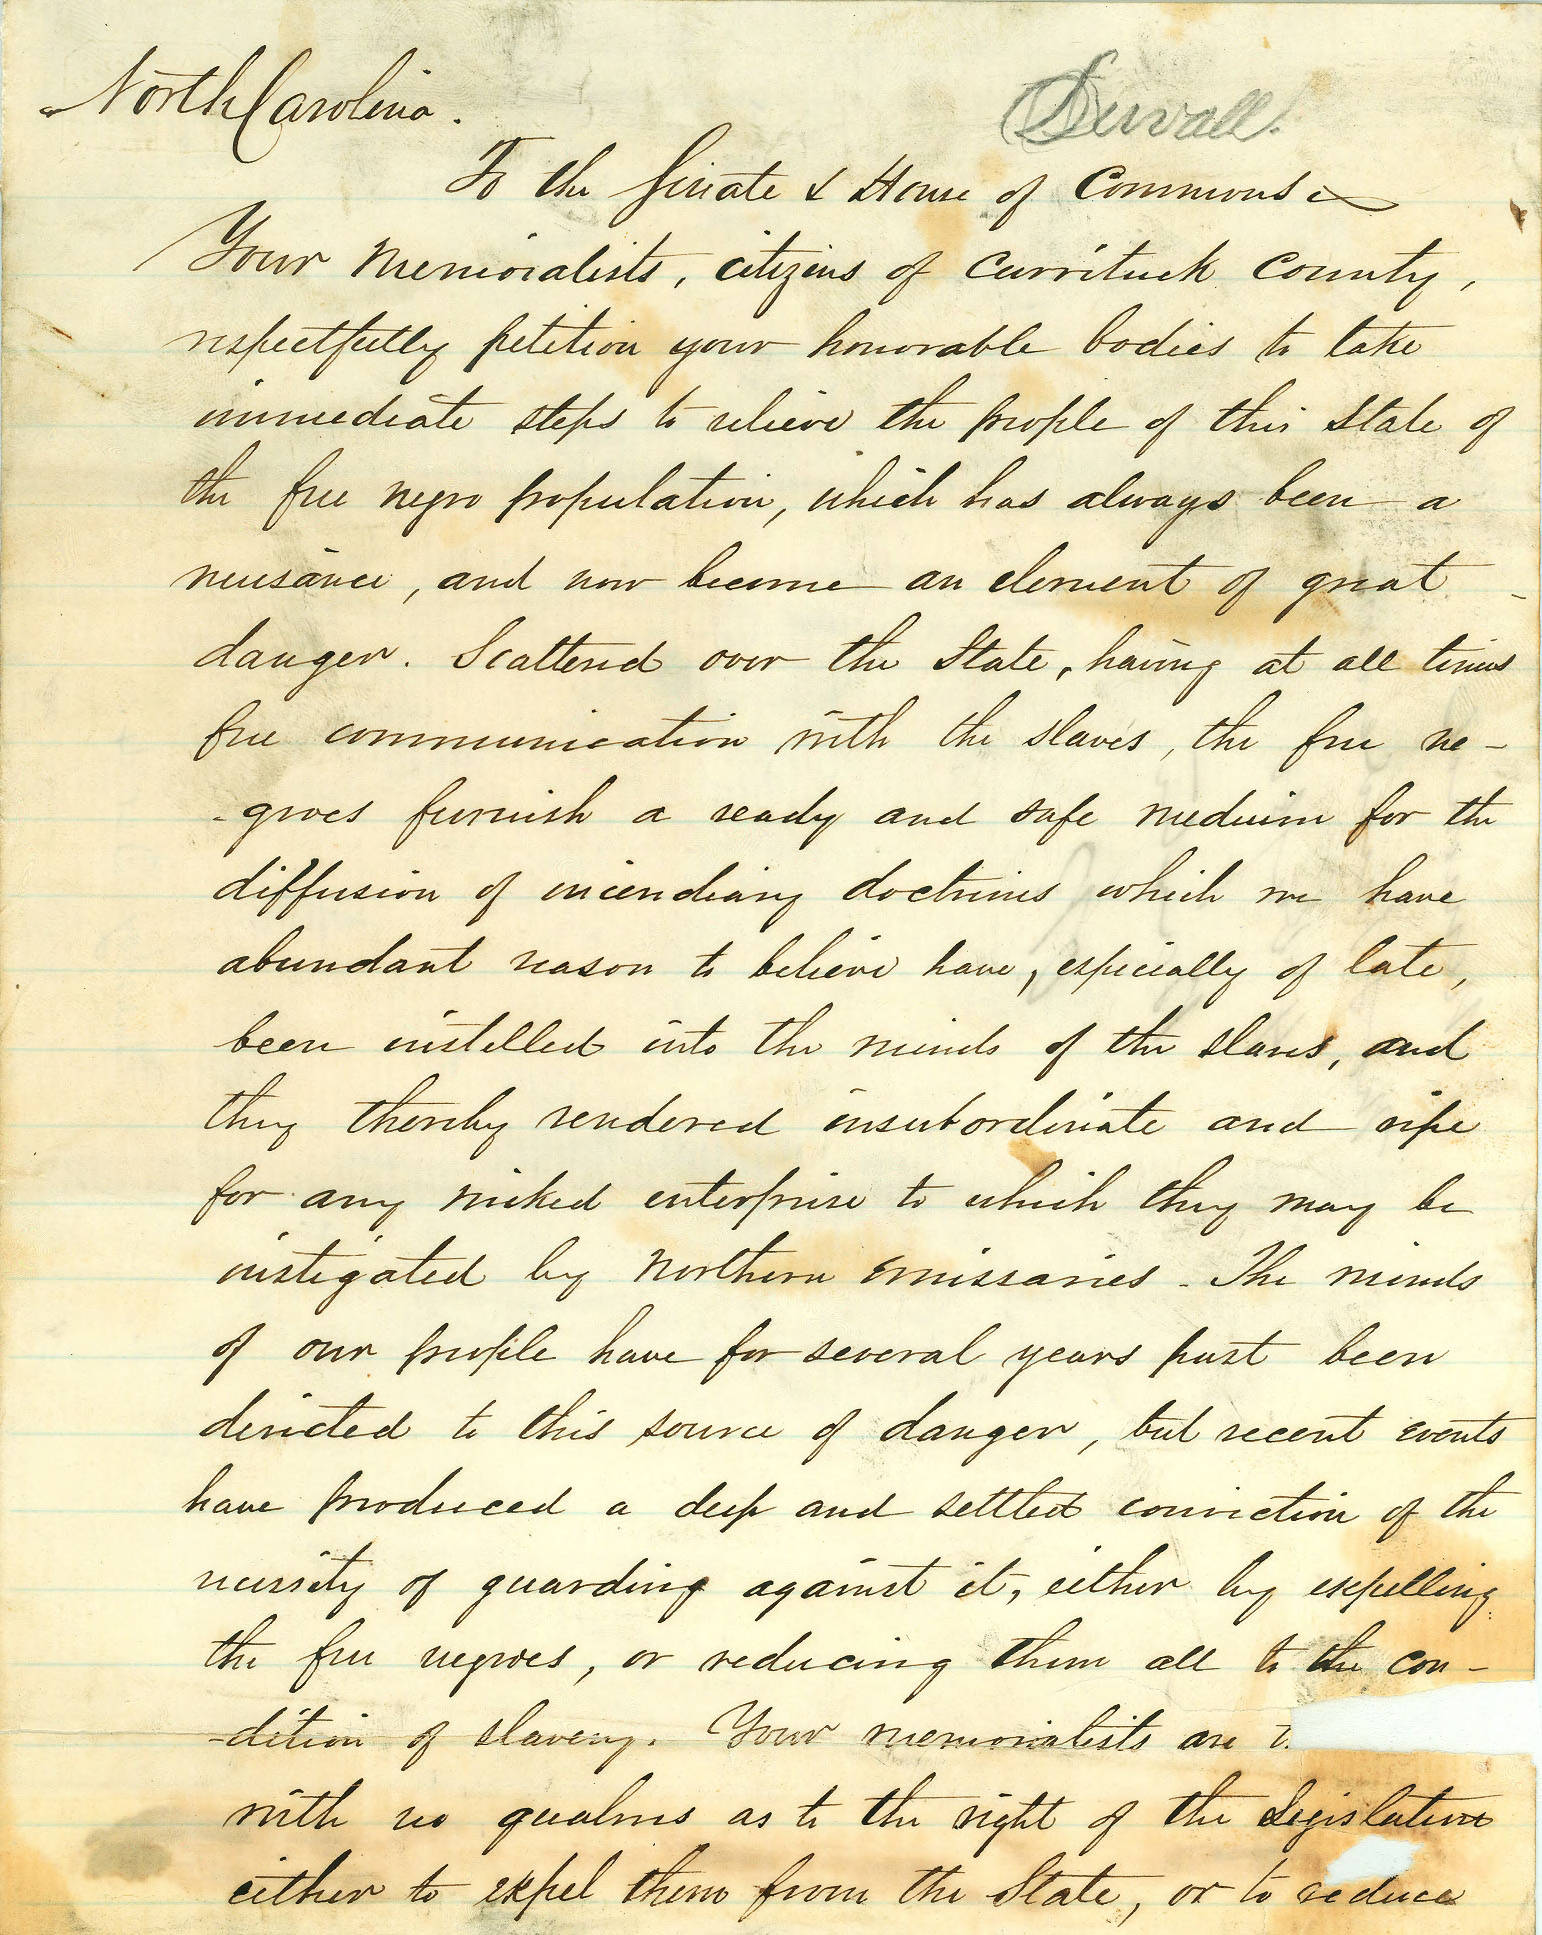 North Carolina.
To the Senate & House of Commons
Your memorialists, citizens of Currituck County,
respectfully petition your honorable bodies to take
immediate steps to relieve the people of this State of
the free negro population, which has always been a
nuisance, and now become an element of great
danger. Scattered over the State, having at all times
free communication with the slaves, the free ne-
-groes furnish a ready and safe medium for the
diffusion of incendiary doctrines which we have
abundant reason to believe have, especially of late,
been instilled into the minds of the slaves, and
they thereby rendered insubordinate and ripe
for any wicked enterprise to which they may be
instigated by Northern emissaries. The minds
of our people have for several years past been
directed to this source of danger, but recent events
have produced a deep and settled conviction of the
necessity of guarding against it, either by expelling
the free negroes, or reducing them all to the con-
-dition of slavery. Your memorialists are
with no qualms as to the right of the Legislature
either to expel them from the State, or to reduce